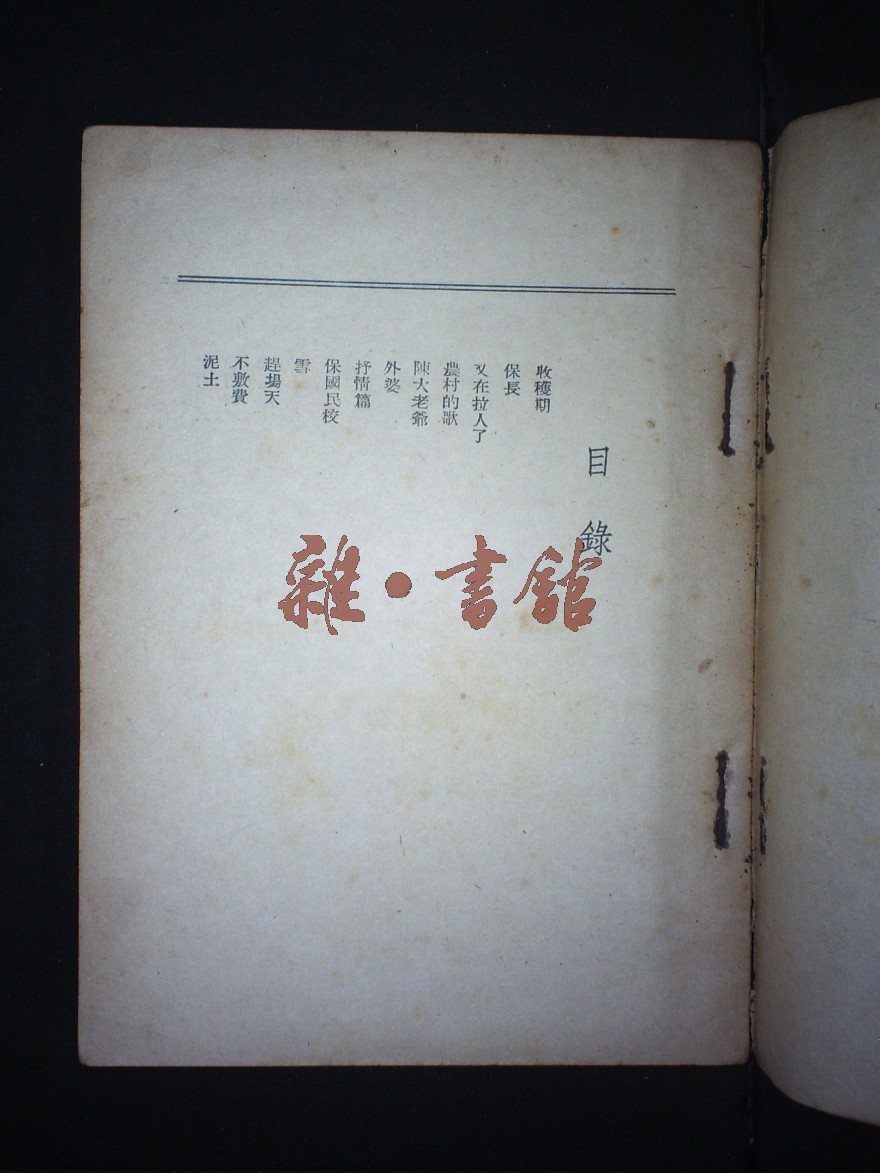 目錄
收穫期
保長
又在拉人了
農村的歌
陳大老爺
外婆
抒情篇
保國民校
雪
趕場天
不敷費
泥土
雜•書館